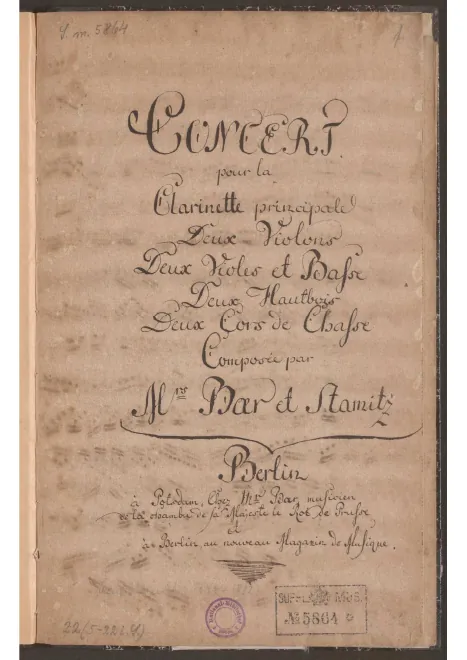 S. m. 5864
1
CONCERT.
pour la
Clarinette principale
Deux Violons
Deux Violes et Basse
Deux Hautbois
Deux Cors de Chasse
Composée par
Mrs Bær et Stamitz
Berlin
à Potsdam, Chez Mr Bær musicien
de la chambre de sa Majesté le Roi de Prusse
et
à Berlin au nouveau Magazin de Musique.
SUPPL. MUS.
№ 5864